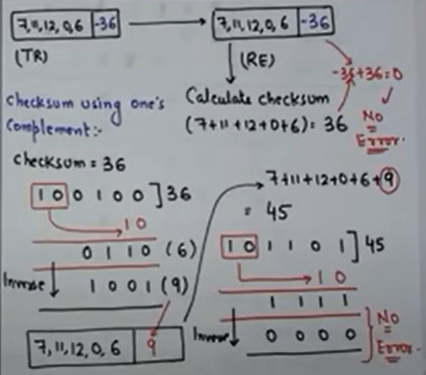 7, 11, 12, 0, 6 -36 → 7, 11, 12, 0, 6 -36
(TR)
(RE)
-36+36=0
No
Error.
Calculate checksum
(7+11+12+0+6)= 36
Checksum using one's
Complement:-
checksum = 36
1 0 0 1 0 0 ] 36
1 0
0 1 1 0 (6)
Inverse
1 0 0 1 (9)
7, 11, 12, 0, 6 9
7+11+12+0+6+9
= 45
1 0 1 1 0 1 ] 45
1 0
1 1 1 1
Inverse
0 0 0 0
No
Error.